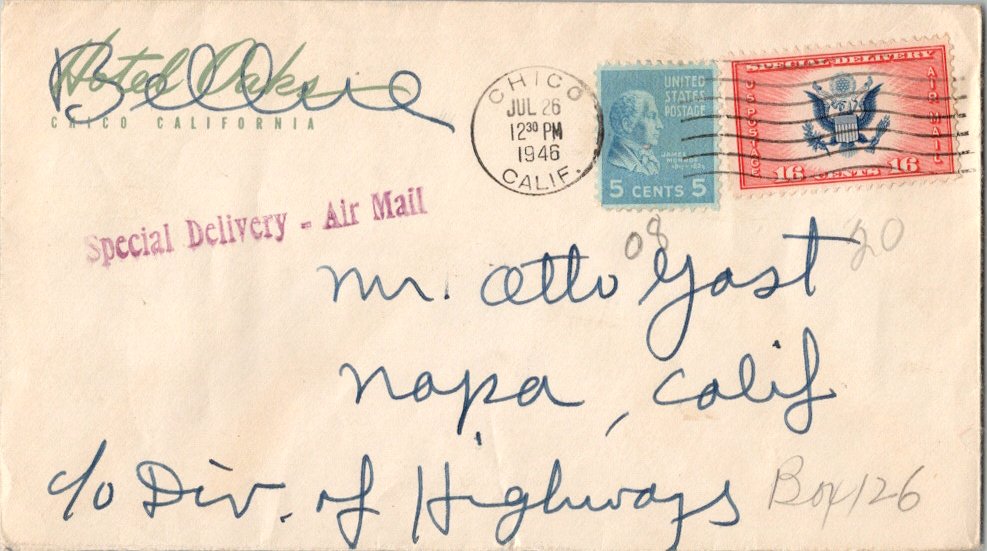 Hotel Oaks
CHICO CALIFORNIA
CHICO
JUL 26
12 30 PM
1946
CALIF.
UNITED
STATES
POSTAGE
JAMES
5 CENTS 5
SPECIAL DELIVERY
U S POSTAGE
AIR MAIL
16 CENTS 16
Special Delivery - Air Mail
08
20
Mr. Otto Gast
Napa, Calif
c/o Div. of Highways
Box 126